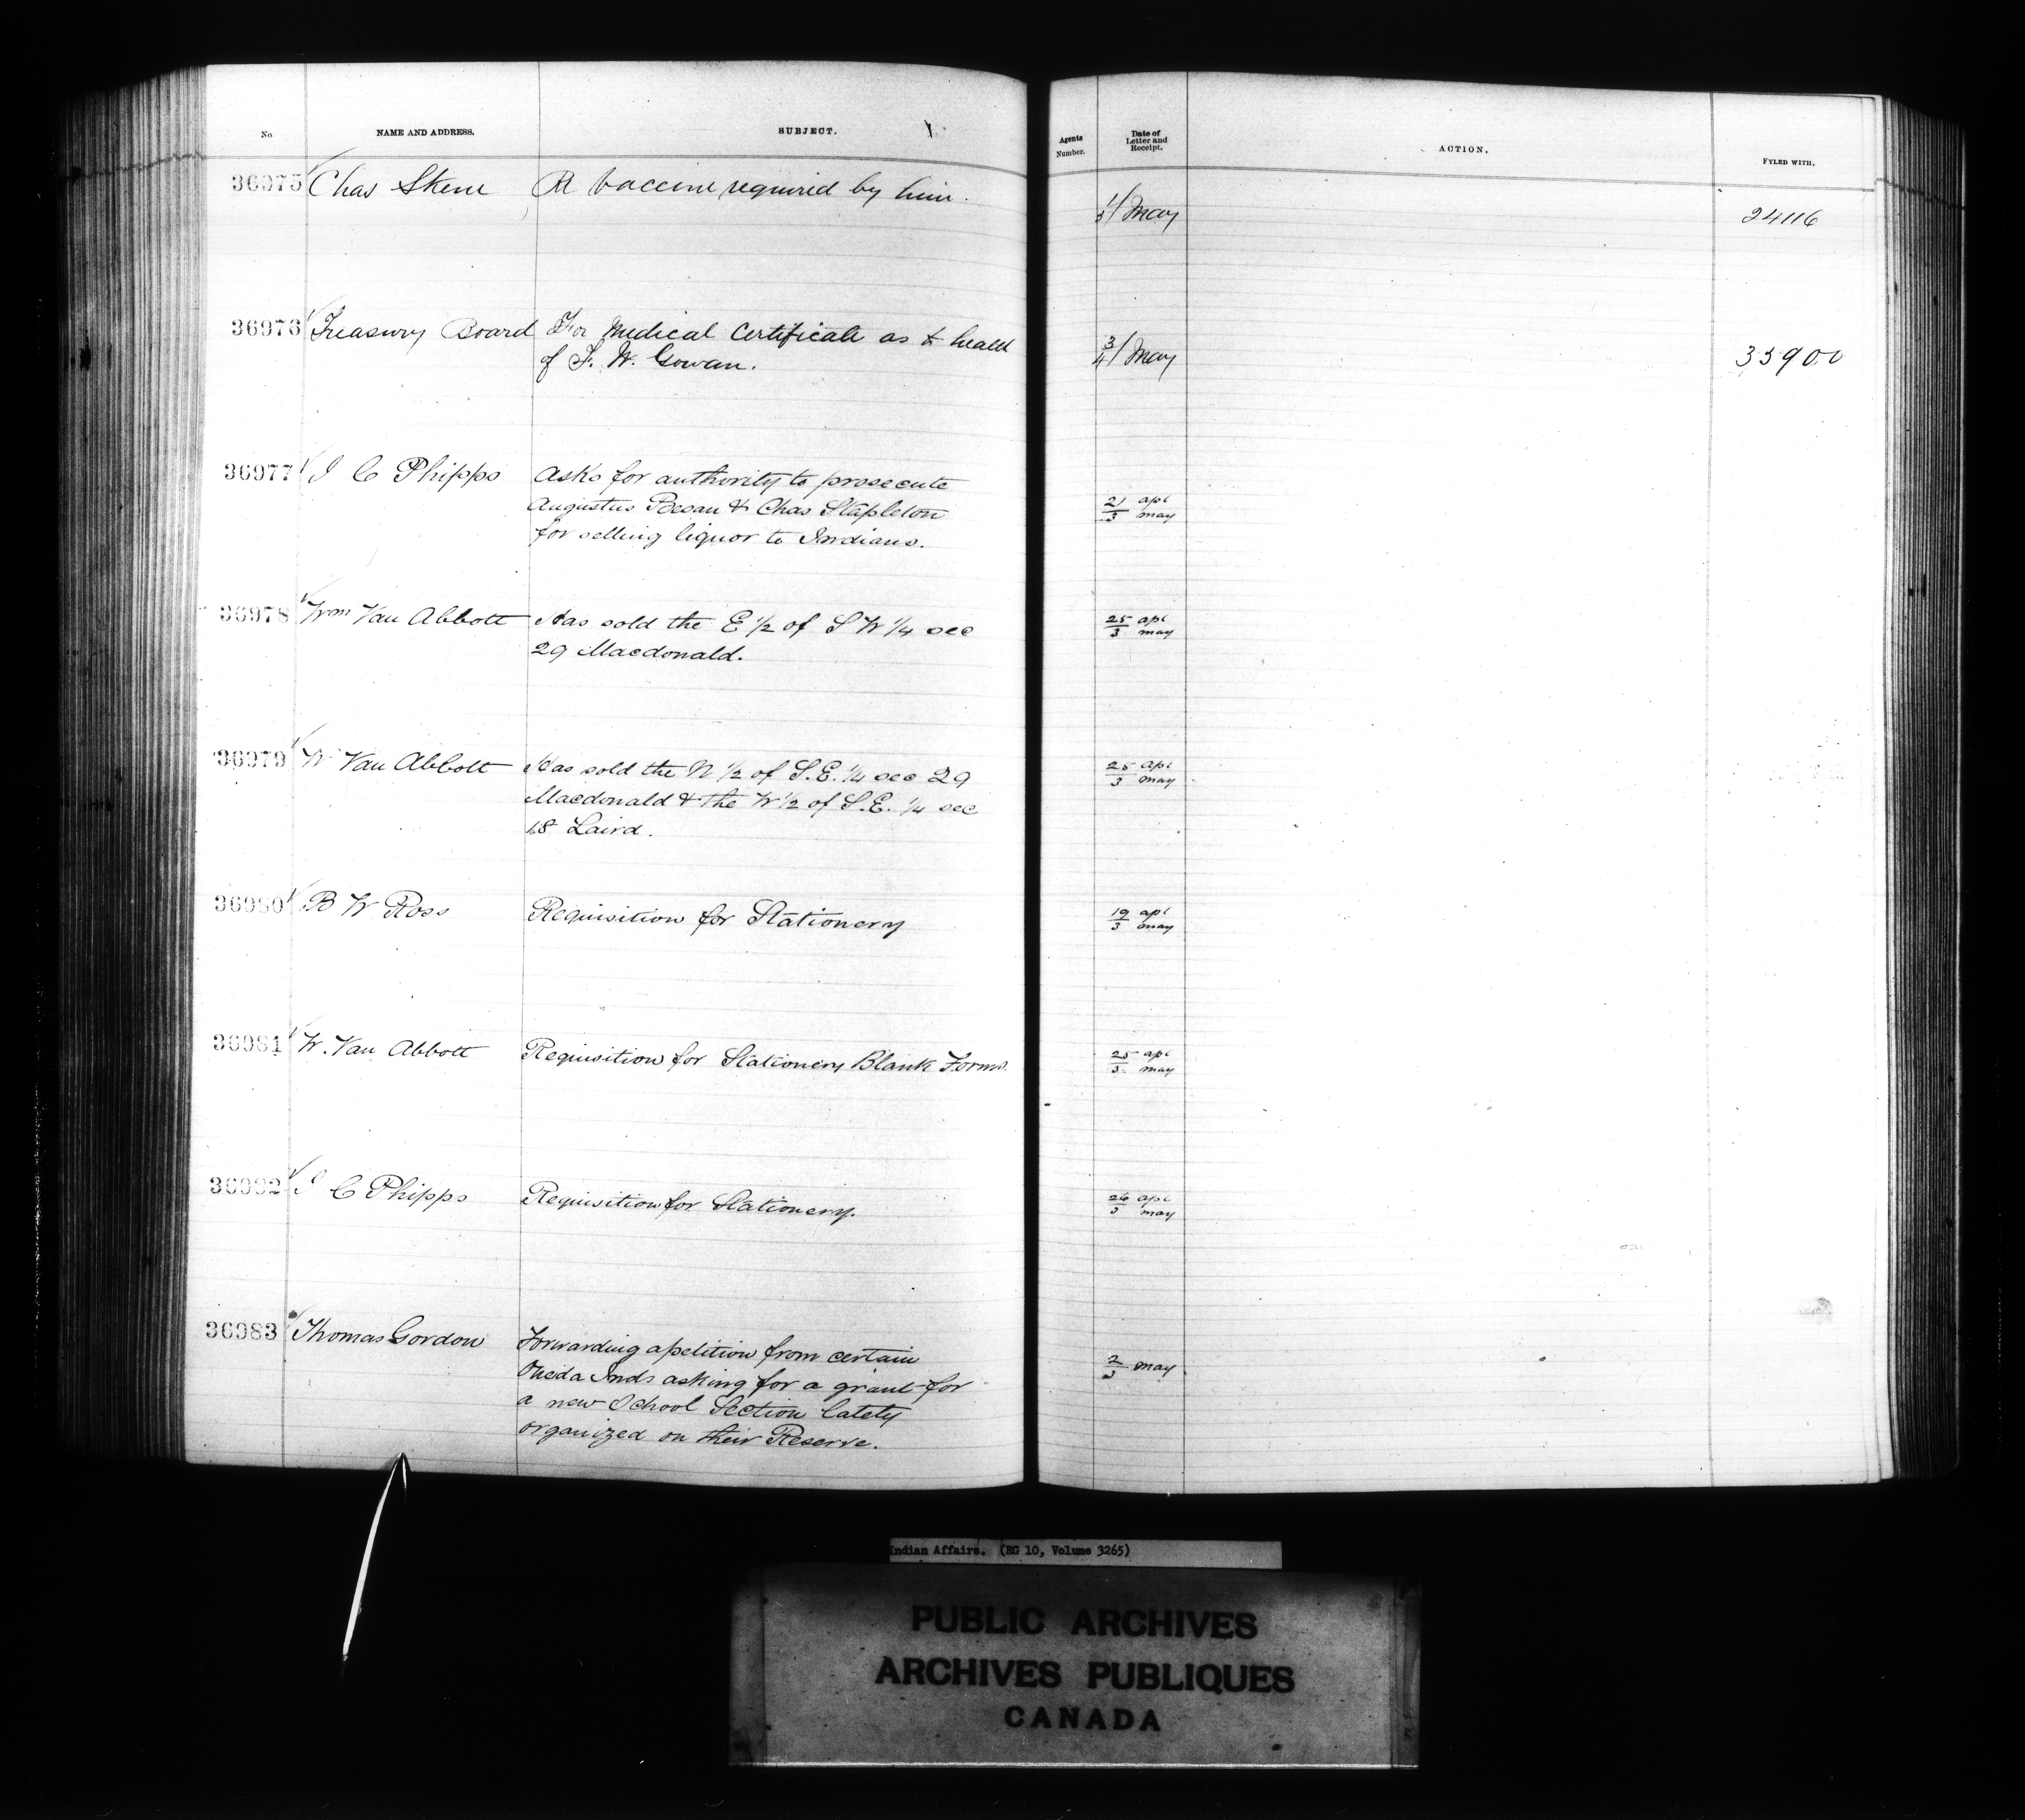 No. NAME AND ADDRESS. SUBJECT. Agents Number. Date of Letter and Receipt. ACTION. FYLED WITH.
36975 Chas Skene R vaccine required by him. 1/3 May 24116
36976 Treasury Board For Medical Certificate as to health 3/4 May 33900
of F. W. Gowan.
36977 J C Phipps Asks for authority to prosecute
Augustus Besau & Chas Stapleton 21 apl
for selling liquor to Indians. 3 may
36978 Wm Van Abbott Has sold the E 1/2 of S W 1/4 sec 25 apl
29 Macdonald. 3 may
36979 W Van Abbott Has sold the N 1/2 of S.E. 1/4 sec 29 25 apl
Macdonald & the W 1/2 of S.E. 1/4 sec 3 may
18 Laird.
36980 B W Ross Requisition for Stationery 19 apl
3 may
36981 W. Van Abbott Requisition for Stationery Blank Forms. 25 apl
3 may
36982 J C Phipps Requisition for Stationery. 26 apl
3 may
36983 Thomas Gordon Forwarding a petition from certain
Oneida Inds asking for a grant for 2/3 may
a new School Section lately
organized on their Reserve.
Indian Affairs. (RG 10, Volume 3265)
PUBLIC ARCHIVES
ARCHIVES PUBLIQUES
CANADA